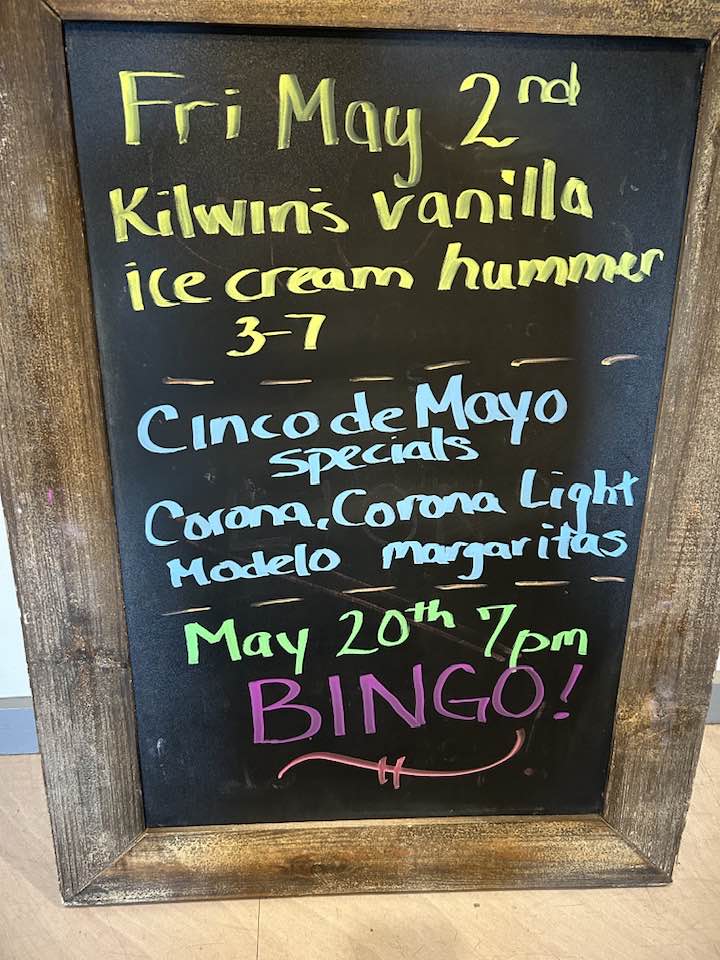 Fri May 2nd
Kilwin's vanilla
ice cream hummer
3-7
Cinco de Mayo
specials
Corona, Corona Light
Modelo margaritas
May 20th 7pm
BINGO!